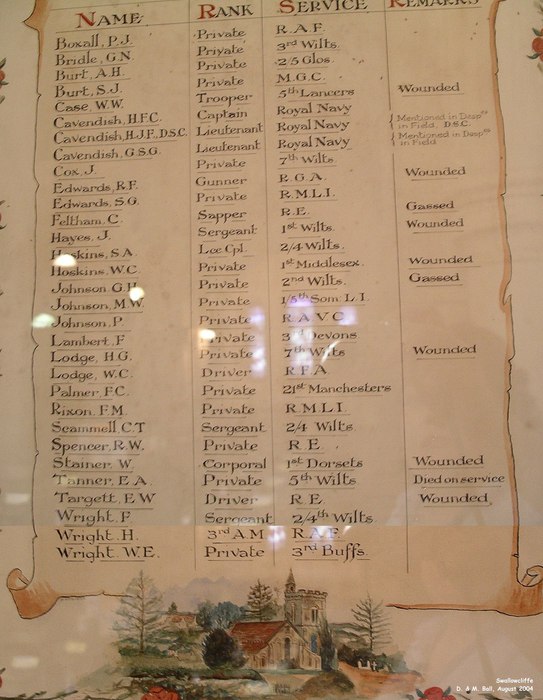 NAME RANK SERVICE REMARKS
Boxall, P.J. Private R.A.F.
Bridle, G.N. Private 3rd Wilts.
Burt, A.H. Private 2/5 Glos.
Burt, S.J. Private M.G.C.
Case, W.W. Trooper 5th Lancers Wounded
Cavendish, H.F.C. Captain Royal Navy
Cavendish, H.J.F., D.S.C. Lieutenant Royal Navy Mentioned in Desp^es in Field, D.S.C.
Cavendish, G.S.G. Lieutenant Royal Navy Mentioned in Desp^es in Field
Cox, J. Private 7th Wilts.
Edwards, R.F. Gunner R.G.A. Wounded
Edwards, S.G. Private R.M.L.I.
Feltham, C. Sapper R.E. Gassed
Hayes, J. Sergeant 1st Wilts. Wounded
Hoskins, S.A. Lce Cpl. 2/4 Wilts.
Hoskins, W.C. Private 1st Middlesex. Wounded
Johnson, G.H. Private 2nd Wilts. Gassed
Johnson, M.W. Private 1/5th Som. L.I.
Johnson, P. Private R.A.V.C.
Lambert, F. Private 3rd Devons.
Lodge, H.G. Private 7th Wilts Wounded
Lodge, W.C. Driver R.F.A.
Palmer, F.C. Private 21st Manchesters
Rixon, F.M. Private R.M.L.I.
Scammell, C.T. Sergeant 2/4 Wilts.
Spencer, R.W. Private R.E.
Stainer, W. Corporal 1st Dorsets Wounded
Tanner, E.A. Private 5th Wilts Died on service
Targett, E.W. Driver R.E. Wounded
Wright, F. Sergeant 2/4th Wilts.
Wright, H. 3rd A.M. R.A.F.
Wright, W.E. Private 3rd Buffs.
Swallowcliffe
D. & M. Ball, August 2004